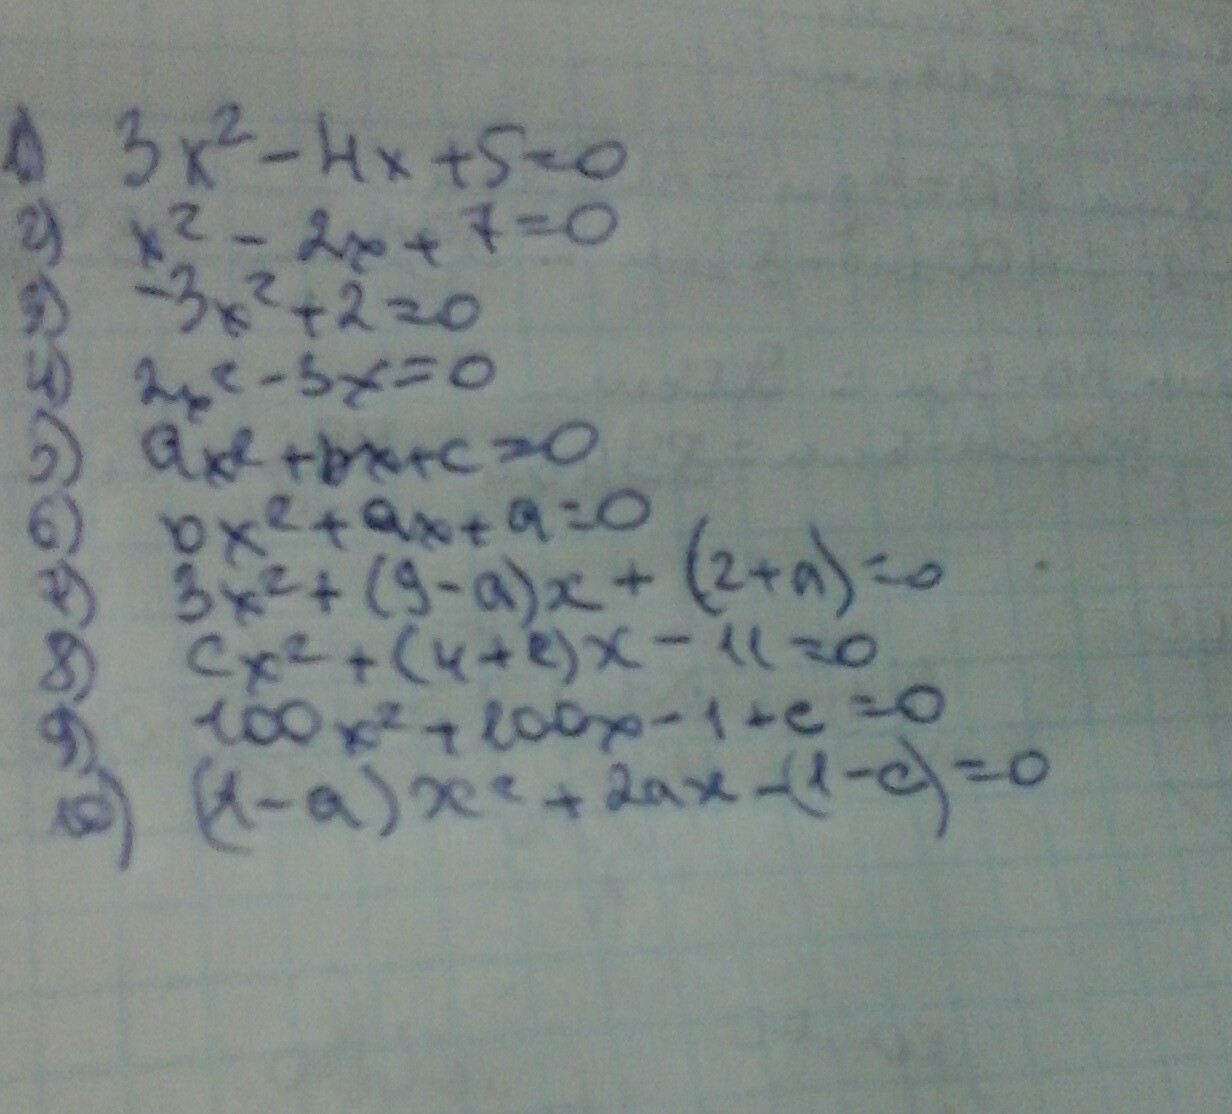 1) 3x² - 4x + 5 = 0
2) x² - 2x + 7 = 0
3) -3x² + 2 = 0
4) 2x² - 3x = 0
5) ax² + bx + c = 0
6) bx² + ax + a = 0
7) 3x² + (9 - a)x + (2 + a) = 0
8) cx² + (4 + c)x - 11 = 0
9) 100x² + 200x - 1 + c = 0
10) (1 - a)x² + 2ax - (1 - c) = 0